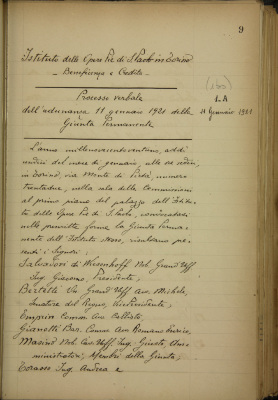 9
Istituto delle Opere Pie di S. Paolo in Torino
- Beneficenza e Credito -
Processo verbale
dell'adunanza 11 gennaio 1921 della
Giunta Permanente
11 Gennaio 1921
L'anno millenovecentoventuno, addì
undici del mese di gennaio, alle ore sedici,
in Torino, via Monte di Pietà, numero
trentadue, nella sala delle Commissioni
al primo piano del palazzo dell'Istitu-
to delle Opere Pie di S. Paolo, convocatasi
nelle prescritte forme la Giunta Perma-
nente dell'Istituto stesso, risultano pre-
senti i Signori:
Salvadori di Wiesenhoff Nob. Grand'Uff.
Ing. Giacomo, Presidente;
Bertetti Grand'Uff. Avv. Michele,
Senatore del Regno, Vicepresidente;
Emprin Comm. Avv. Callisto,
Gianotti Bar. Comm. Avv. Romano Enrico,
Masino Nob. Cav. Uff. Ing. Giusto, Am-
ministratori, Membri della Giunta;
Torasso Ing. Andrea e